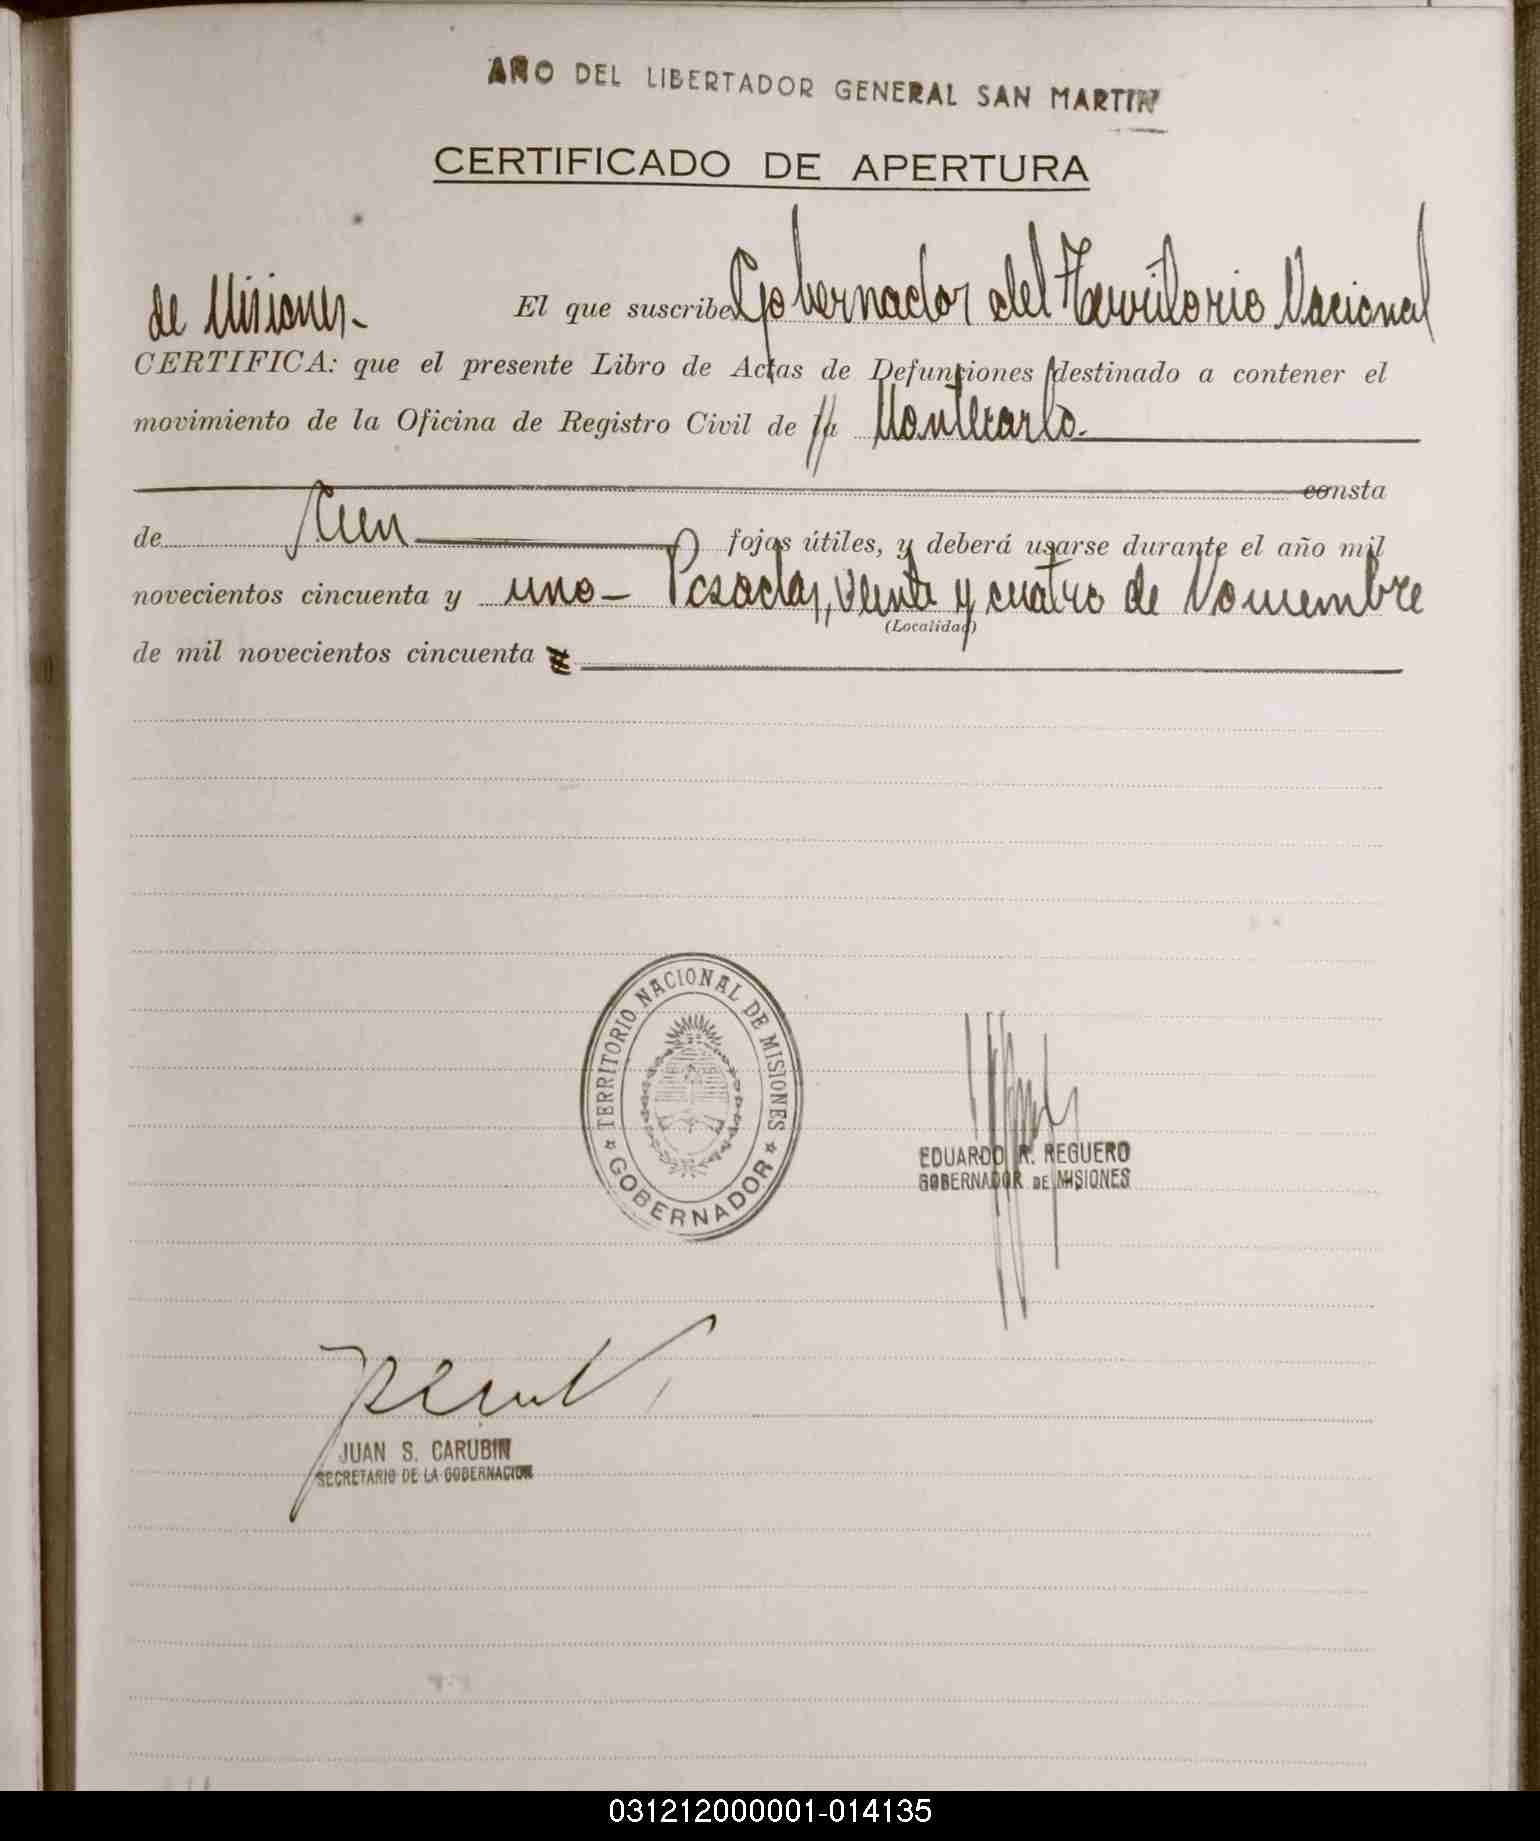 AÑO DEL LIBERTADOR GENERAL SAN MARTIN
CERTIFICADO DE APERTURA
El que suscribe Gobernador del Territorio Nacional
de Misiones.-
CERTIFICA: que el presente Libro de Actas de Defunciones destinado a contener el
movimiento de la Oficina de Registro Civil de Montecarlo.
consta
de Cien fojas útiles, y deberá usarse durante el año mil
novecientos cincuenta y uno- Posadas, veinte y cuatro de Noviembre
(Localidad)
de mil novecientos cincuenta
TERRITORIO NACIONAL DE MISIONES
GOBERNADOR
EDUARDO R. REGUERO
GOBERNADOR DE MISIONES
JUAN S. CARUBIN
SECRETARIO DE LA GOBERNACION
031212000001-014135